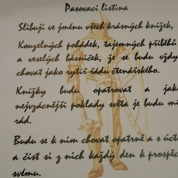 Pasovací listina
Slibuji ve jménu všech krásných knížek,
Kouzelných pohádek, tajemných příběhů
a veselých básniček, že se budu vždy
chovat jako rytíř řádu čtenářského.
Knížky budu opatrovat a jako
nejvzácnější poklady světa je budu mí
rád.
Budu se k nim chovat opatrně a s úct
a číst si z nich každý den k prospěc
svému.